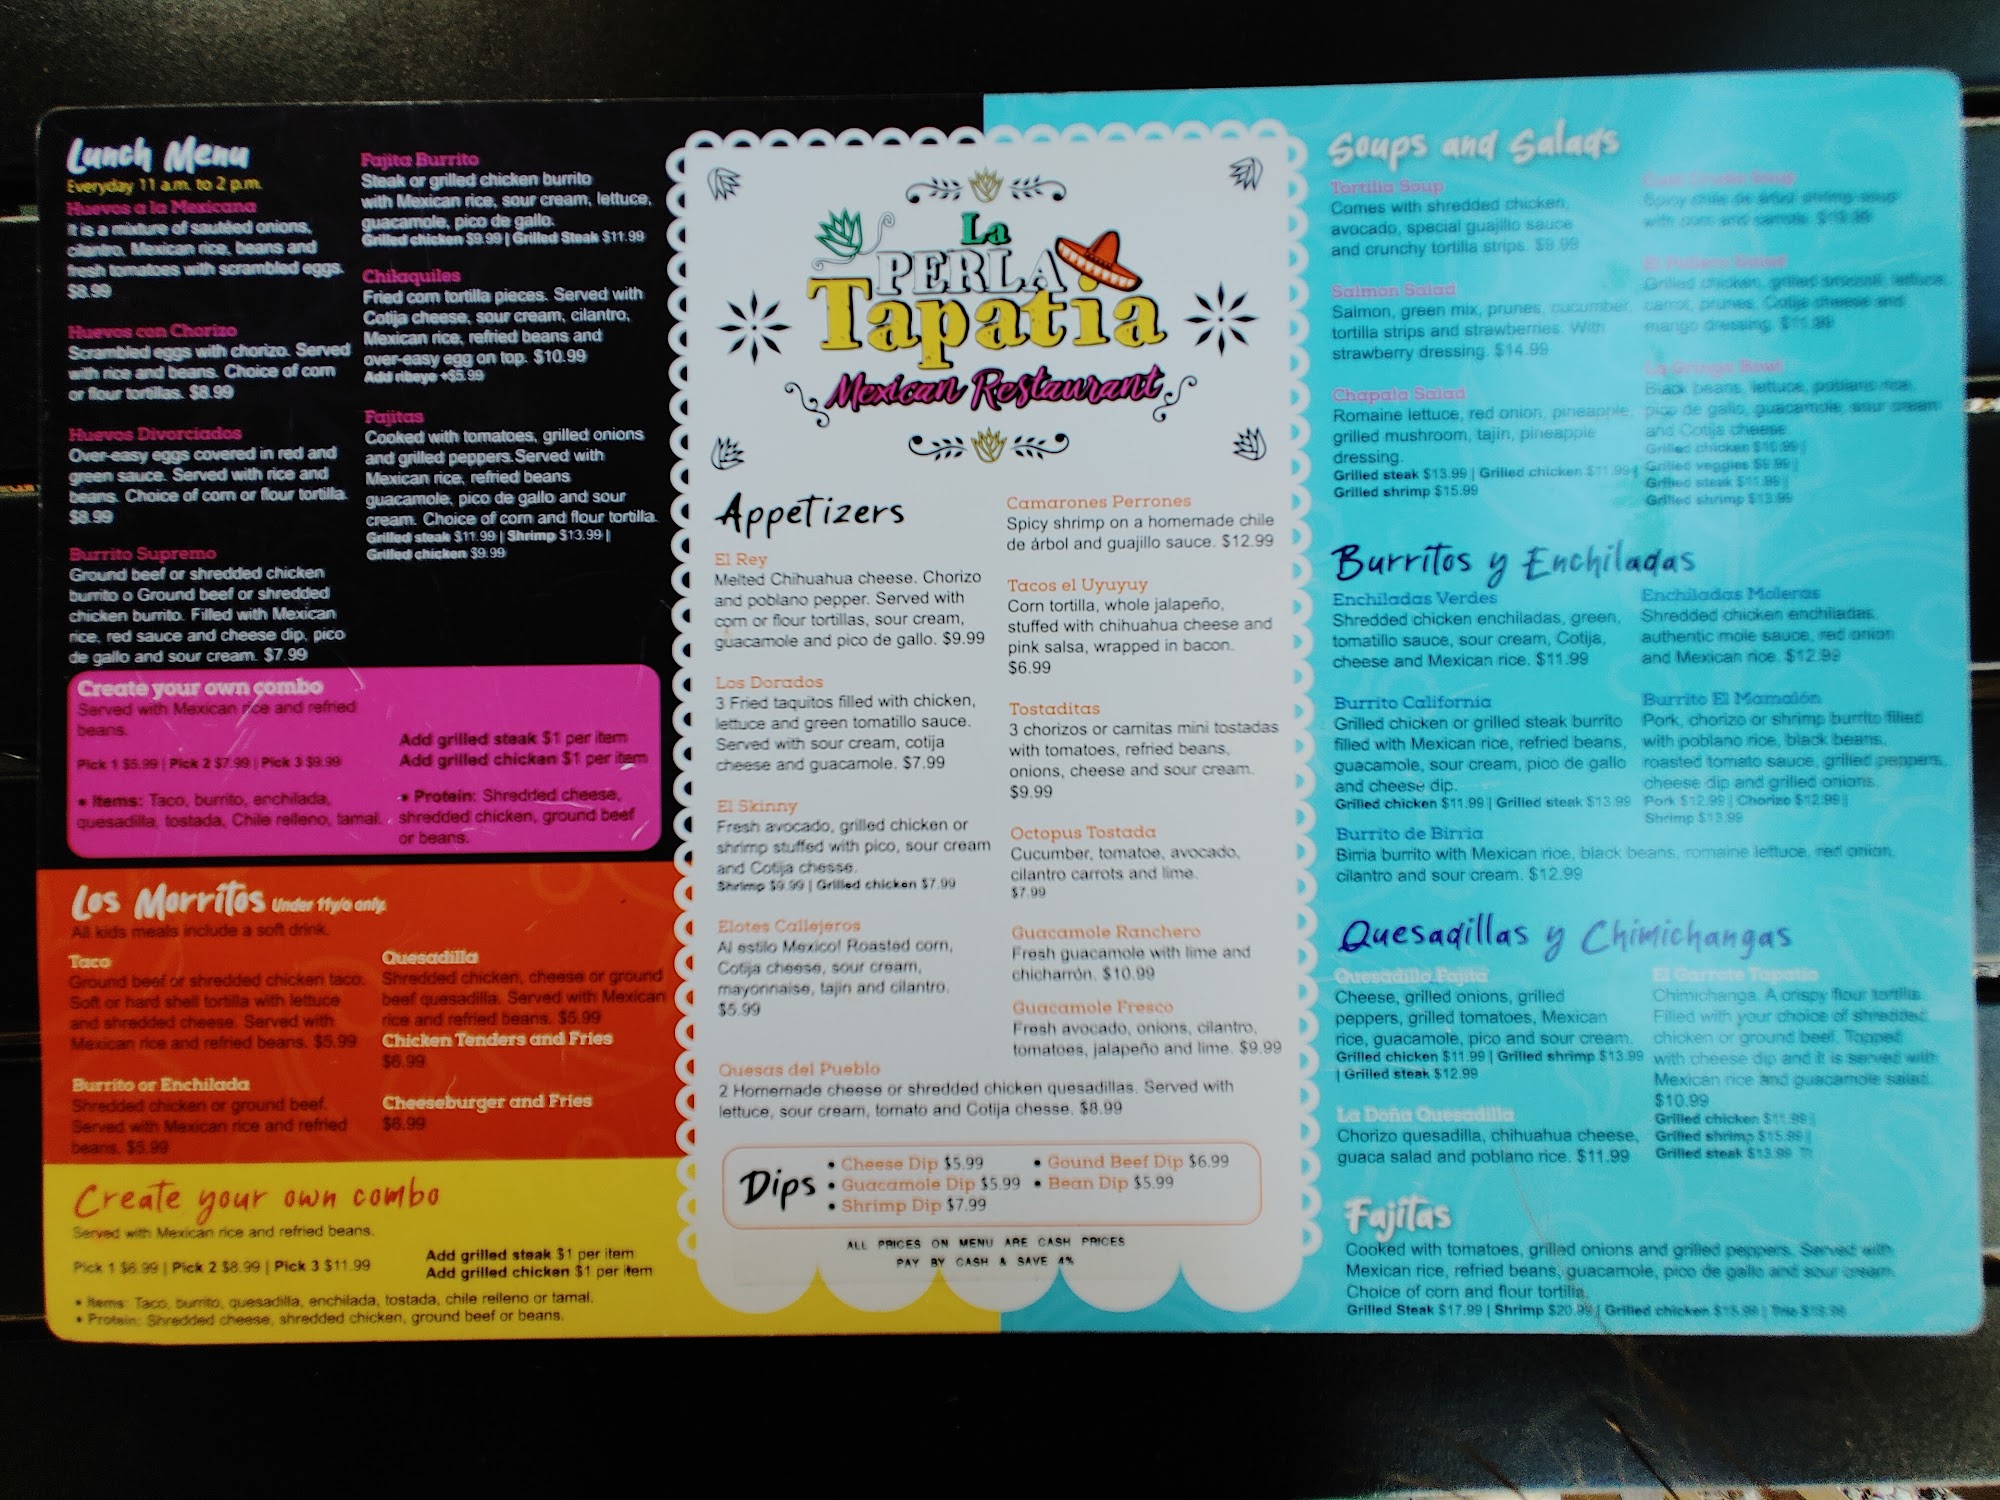 Lunch Menu
Everyday 11 a.m. to 2 p.m.
Huevos a la Mexicana
It is a mixture of sautéed onions,
cilantro, Mexican rice, beans and
fresh tomatoes with scrambled eggs.
$8.99
Huevos con Chorizo
Scrambled eggs with chorizo. Served
with rice and beans. Choice of corn
or flour tortillas. $8.99
Huevos Divorciados
Over-easy eggs covered in red and
green sauce. Served with rice and
beans. Choice of corn or flour tortilla.
$8.99
Burrito Supremo
Ground beef or shredded chicken
burrito o Ground beef or shredded
chicken burrito. Filled with Mexican
rice, red sauce and cheese dip, pico
de gallo and sour cream. $7.99
Fajita Burrito
Steak or grilled chicken burrito
with Mexican rice, sour cream, lettuce,
guacamole, pico de gallo.
Grilled chicken $9.99 | Grilled Steak $11.99
Chilaquiles
Fried corn tortilla pieces. Served with
Cotija cheese, sour cream, cilantro,
Mexican rice, refried beans and
over-easy egg on top. $10.99
Add ribeye +$5.99
Fajitas
Cooked with tomatoes, grilled onions
and grilled peppers.Served with
Mexican rice, refried beans
guacamole, pico de gallo and sour
cream. Choice of corn and flour tortilla.
Grilled steak $11.99 | Shrimp $13.99 |
Grilled chicken $9.99
Create your own combo
Served with Mexican rice and refried
beans.
Pick 1 $5.99 | Pick 2 $7.99 | Pick 3 $9.99
• Items: Taco, burrito, enchilada,
quesadilla, tostada, Chile relleno, tamal.
Add grilled steak $1 per item
Add grilled chicken $1 per item
• Protein: Shredded cheese,
shredded chicken, ground beef
or beans.
Los Morritos Under 11y/o only.
All kids meals include a soft drink.
Taco
Ground beef or shredded chicken taco.
Soft or hard shell tortilla with lettuce
and shredded cheese. Served with
Mexican rice and refried beans. $5.99
Burrito or Enchilada
Shredded chicken or ground beef.
Served with Mexican rice and refried
beans. $5.99
Quesadilla
Shredded chicken, cheese or ground
beef quesadilla. Served with Mexican
rice and refried beans. $5.99
Chicken Tenders and Fries
$6.99
Cheeseburger and Fries
$6.99
Create your own combo
Served with Mexican rice and refried beans.
Pick 1 $6.99 | Pick 2 $8.99 | Pick 3 $11.99
Add grilled steak $1 per item
Add grilled chicken $1 per item
• Items: Taco, burrito, quesadilla, enchilada, tostada, chile relleno or tamal.
• Protein: Shredded cheese, shredded chicken, ground beef or beans.
La
PERLA
Tapatia
Mexican Restaurant
Appetizers
El Rey
Melted Chihuahua cheese. Chorizo
and poblano pepper. Served with
corn or flour tortillas, sour cream,
guacamole and pico de gallo. $9.99
Los Dorados
3 Fried taquitos filled with chicken,
lettuce and green tomatillo sauce.
Served with sour cream, cotija
cheese and guacamole. $7.99
El Skinny
Fresh avocado, grilled chicken or
shrimp stuffed with pico, sour cream
and Cotija chesse.
Shrimp $9.99 | Grilled chicken $7.99
Elotes Callejeros
Al estilo Mexico! Roasted corn,
Cotija cheese, sour cream,
mayonnaise, tajin and cilantro.
$5.99
Camarones Perrones
Spicy shrimp on a homemade chile
de árbol and guajillo sauce. $12.99
Tacos el Uyuyuy
Corn tortilla, whole jalapeño,
stuffed with chihuahua cheese and
pink salsa, wrapped in bacon.
$6.99
Tostaditas
3 chorizos or carnitas mini tostadas
with tomatoes, refried beans,
onions, cheese and sour cream.
$9.99
Octopus Tostada
Cucumber, tomatoe, avocado,
cilantro carrots and lime.
$7.99
Guacamole Ranchero
Fresh guacamole with lime and
chicharrón. $10.99
Guacamole Fresco
Fresh avocado, onions, cilantro,
tomatoes, jalapeño and lime. $9.99
Quesas del Pueblo
2 Homemade cheese or shredded chicken quesadillas. Served with
lettuce, sour cream, tomato and Cotija chesse. $8.99
Dips
• Cheese Dip $5.99
• Guacamole Dip $5.99
• Shrimp Dip $7.99
• Gound Beef Dip $6.99
• Bean Dip $5.99
ALL PRICES ON MENU ARE CASH PRICES
PAY BY CASH & SAVE 4%
Soups and Salads
Tortilla Soup
Comes with shredded chicken,
avocado, special guajillo sauce
and crunchy tortilla strips. $9.99
Salmon Salad
Salmon, green mix, prunes, cucumber,
tortilla strips and strawberries. With
strawberry dressing. $14.99
Chapala Salad
Romaine lettuce, red onion, pineapple,
grilled mushroom, tajin, pineapple
dressing.
Grilled steak $13.99 | Grilled chicken $11.99
Grilled shrimp $15.99
Soup
Spicy chile de árbol shrimp soup
with corn and carrots.
Salad
Grilled chicken, grilled broccoli, lettuce,
carrot, prunes, Cotija cheese and
mango dressing. $11.99
La Gringa Bowl
Black beans, lettuce, poblano rice,
pico de gallo, guacamole, sour cream
and Cotija cheese.
Grilled chicken $10.99 |
Grilled veggies $9.99 |
Grilled steak $11.99 |
Grilled shrimp $13.99
Burritos y Enchiladas
Enchiladas Verdes
Shredded chicken enchiladas, green,
tomatillo sauce, sour cream, Cotija,
cheese and Mexican rice. $11.99
Burrito California
Grilled chicken or grilled steak burrito
filled with Mexican rice, refried beans,
guacamole, sour cream, pico de gallo
and cheese dip.
Grilled chicken $11.99 | Grilled steak $13.99
Enchiladas Moleras
Shredded chicken enchiladas,
authentic mole sauce, red onion
and Mexican rice. $12.99
Burrito El Mamalón
Pork, chorizo or shrimp burrito filled
with poblano rice, black beans,
roasted tomato sauce, grilled peppers,
cheese dip and grilled onions.
Pork $12.99 | Chorizo $12.99 |
Shrimp $13.99
Burrito de Birria
Birria burrito with Mexican rice, black beans, romaine lettuce, red onion,
cilantro and sour cream. $12.99
Quesadillas y Chimichangas
Quesadilla Fajita
Cheese, grilled onions, grilled
peppers, grilled tomatoes, Mexican
rice, guacamole, pico and sour cream.
Grilled chicken $11.99 | Grilled shrimp $13.99
| Grilled steak $12.99
La Doña Quesadilla
Chorizo quesadilla, chihuahua cheese,
guaca salad and poblano rice. $11.99
El Garrote Tapatio
Chimichanga. A crispy flour tortilla.
Filled with your choice of shredded
chicken or ground beef. Topped
with cheese dip and it is served with
Mexican rice and guacamole salad.
$10.99
Grilled chicken $11.99 |
Grilled shrimp $15.99 |
Grilled steak $13.99
Fajitas
Cooked with tomatoes, grilled onions and grilled peppers. Served with
Mexican rice, refried beans, guacamole, pico de gallo and sour cream.
Choice of corn and flour tortilla.
Grilled Steak $17.99 | Shrimp $20.99 | Grilled chicken $15.99 |